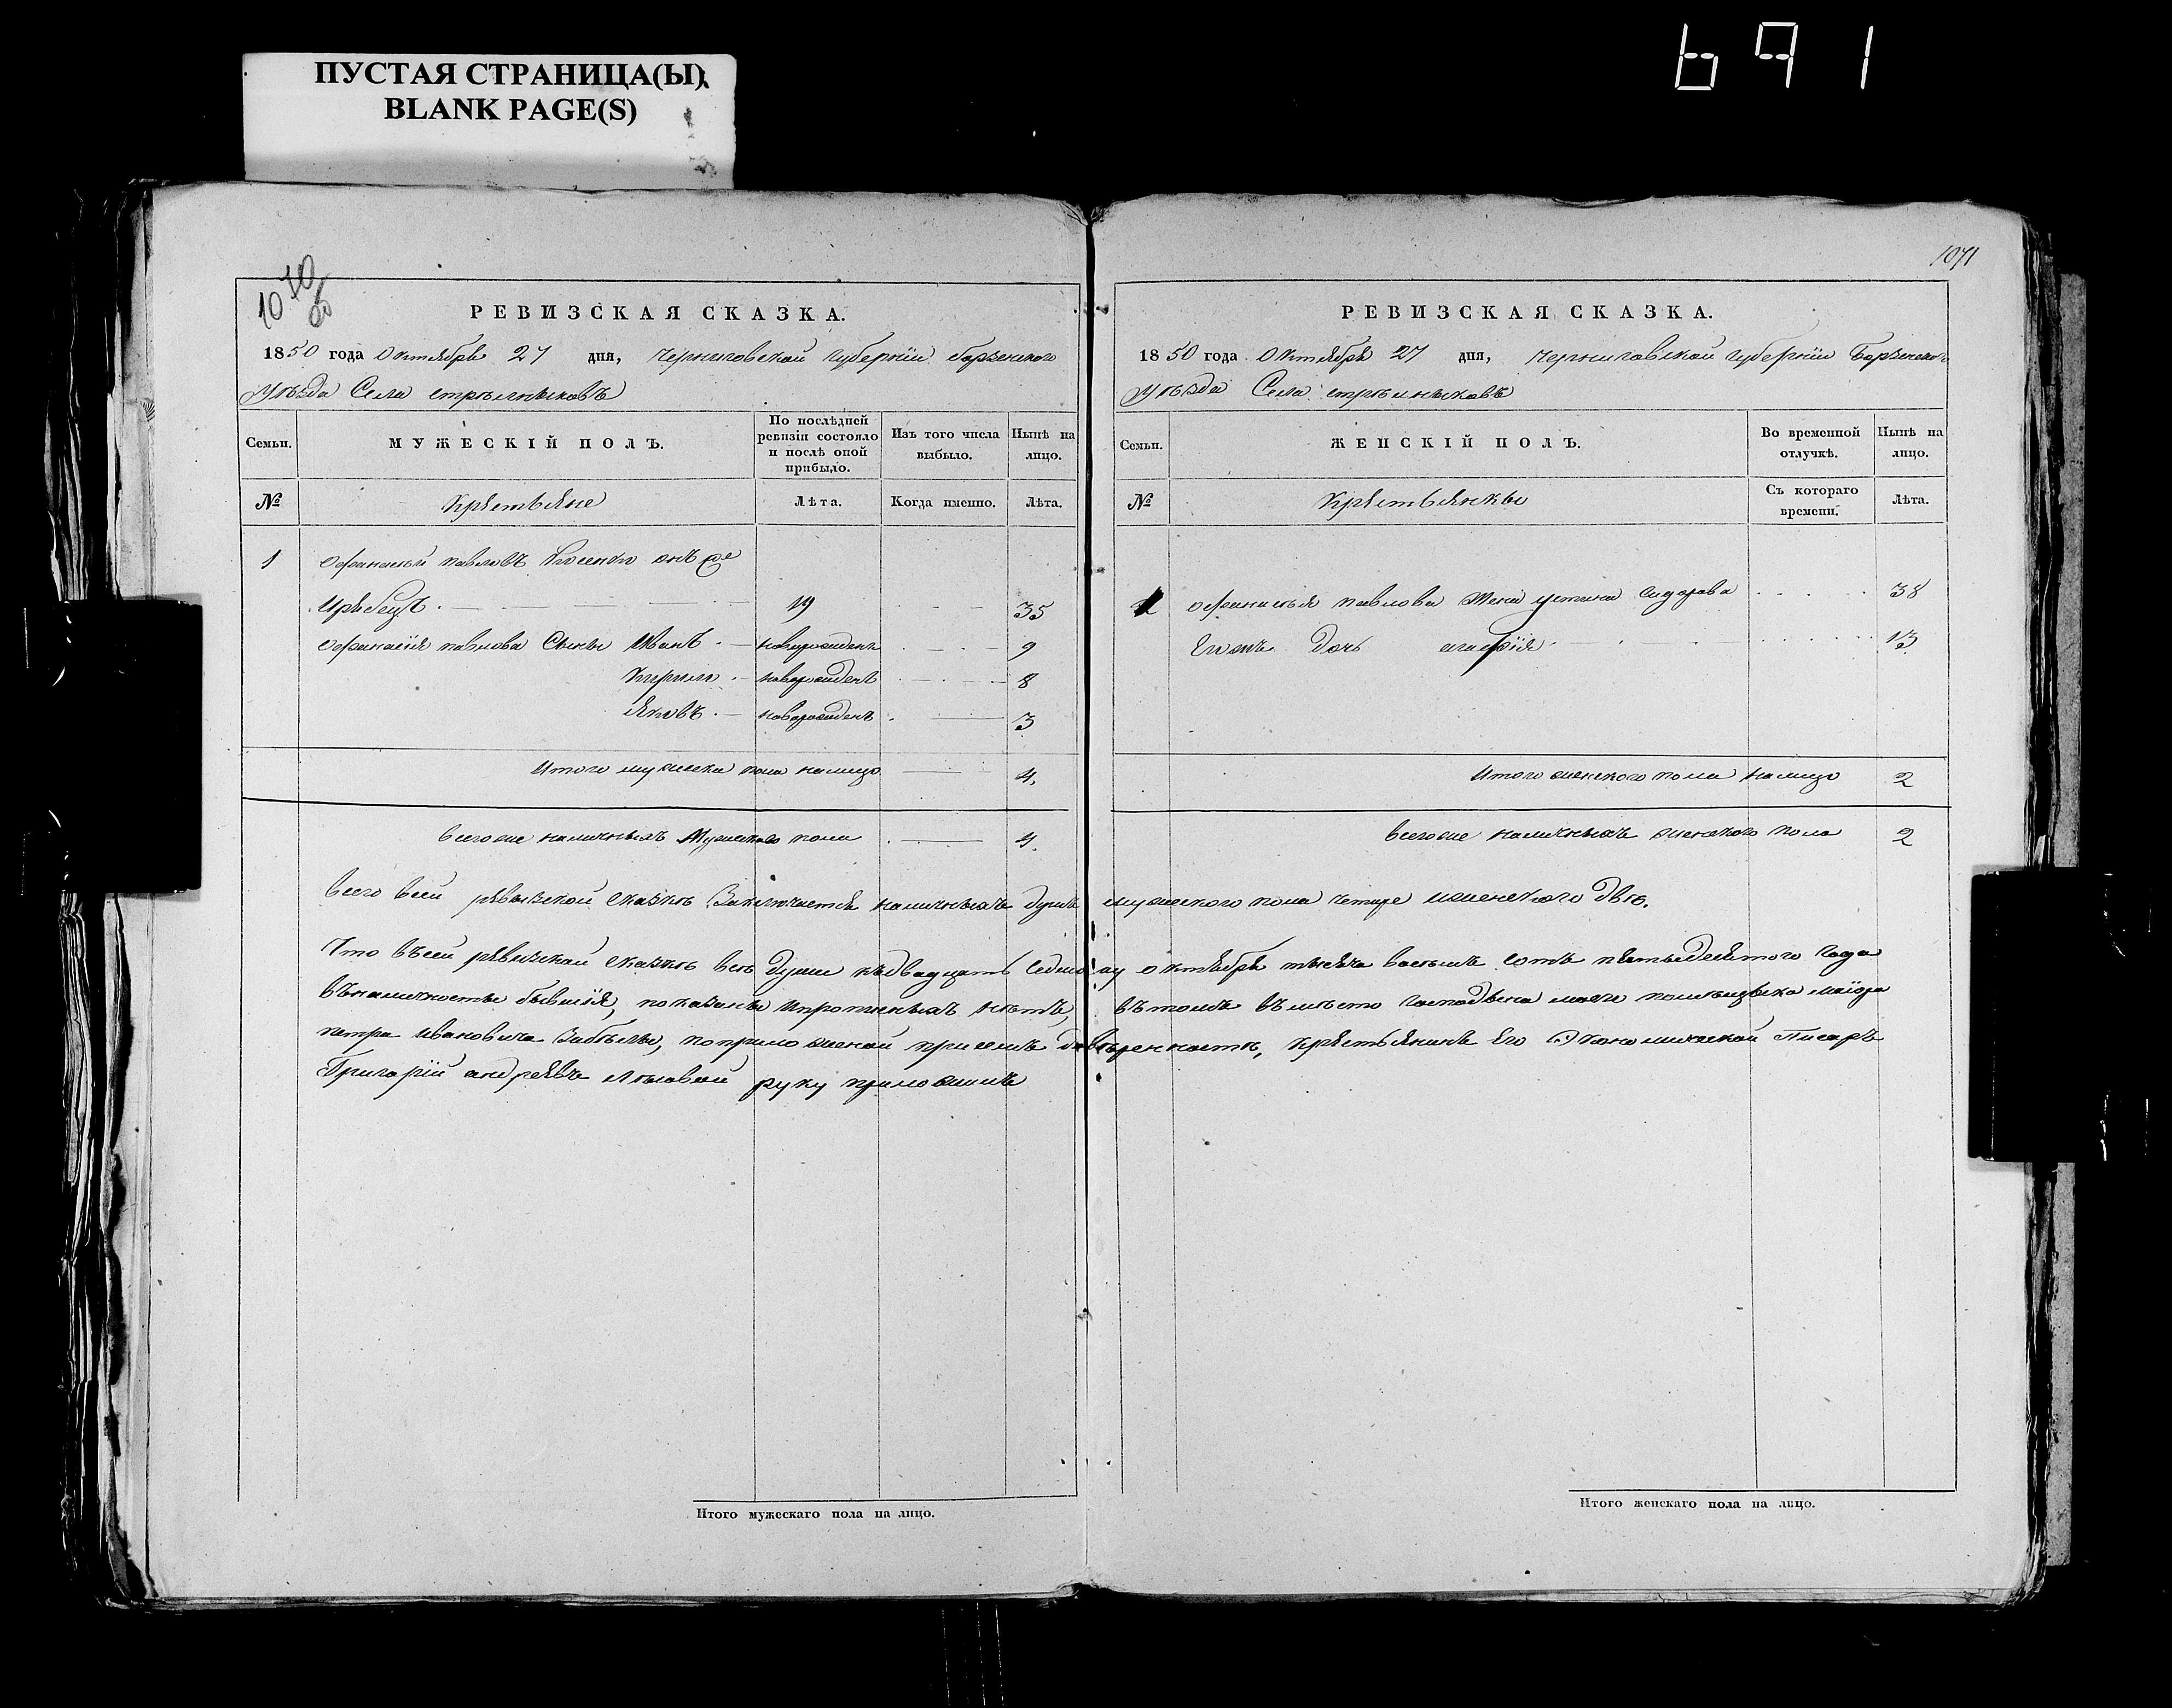 ПУСТАЯ СТРАНИЦА(Ы)
BLANK PAGE(S)
691
1070
об
РЕВИЗСКАЯ СКАЗКА.
1850 года Октября 27 дня, Черниговской Губернїи борзенского
Уѣзда Села стрѣлныковъ
Семьи.
МУЖЕСКІЙ ПОЛЪ.
По послѣдней ревизіи состояло и послѣ оной прибыло.
Изъ того числа выбыло.
Нынѣ на лицо.
№
Крѣстьяне
Лѣта.
Когда именно.
Лѣта.
1 Офанасий павловъ онъ же
19 35
Офанасїя павлова Сыны Иванъ новорожденъ 9
Кирило новорожденъ 8
Яковъ новорожденъ 3
Итого мужеска пола налицо 4
Всегоже наличныхъ Мужеского пола 4
1071
РЕВИЗСКАЯ СКАЗКА.
1850 года Октября 27 дня, Черниговской Губернїи Борзенского
Уѣзда Села стрѣлныковъ
Семьи.
ЖЕНСКІЙ ПОЛЪ.
Во временной отлучкѣ.
Нынѣ на лицо.
№
Крѣстьянкы
Съ котораго времени.
Лѣта.
1 Офанасья павлова Жена устина сидорова 38
Егожъ Дочь агафїя 13
Итого женского пола налицо 2
Всегоже наличныхъ женского пола 2
Всего всей ревызской сказкѣ Заключается наличныхъ душъ мужеского пола четыре иженского двѣ.
Что въсей ревизской сказкѣ всѣ души къдвадцать седмому октября тысяча восымъ сотъ пятьдесятого Года
въналичносты бывшїя, показаны ипропиеныхъ нѣтъ, въ томъ въмѣсто господына моего помѣщыка маїора
петра Ивановича Забѣлы, поприложеной присемъ довѣренносты, крѣстьянинъ Его Экономической Писаръ
Григорїй андреевъ руку приложилъ
Итого мужескаго пола на лицо.
Итого женскаго пола на лицо.